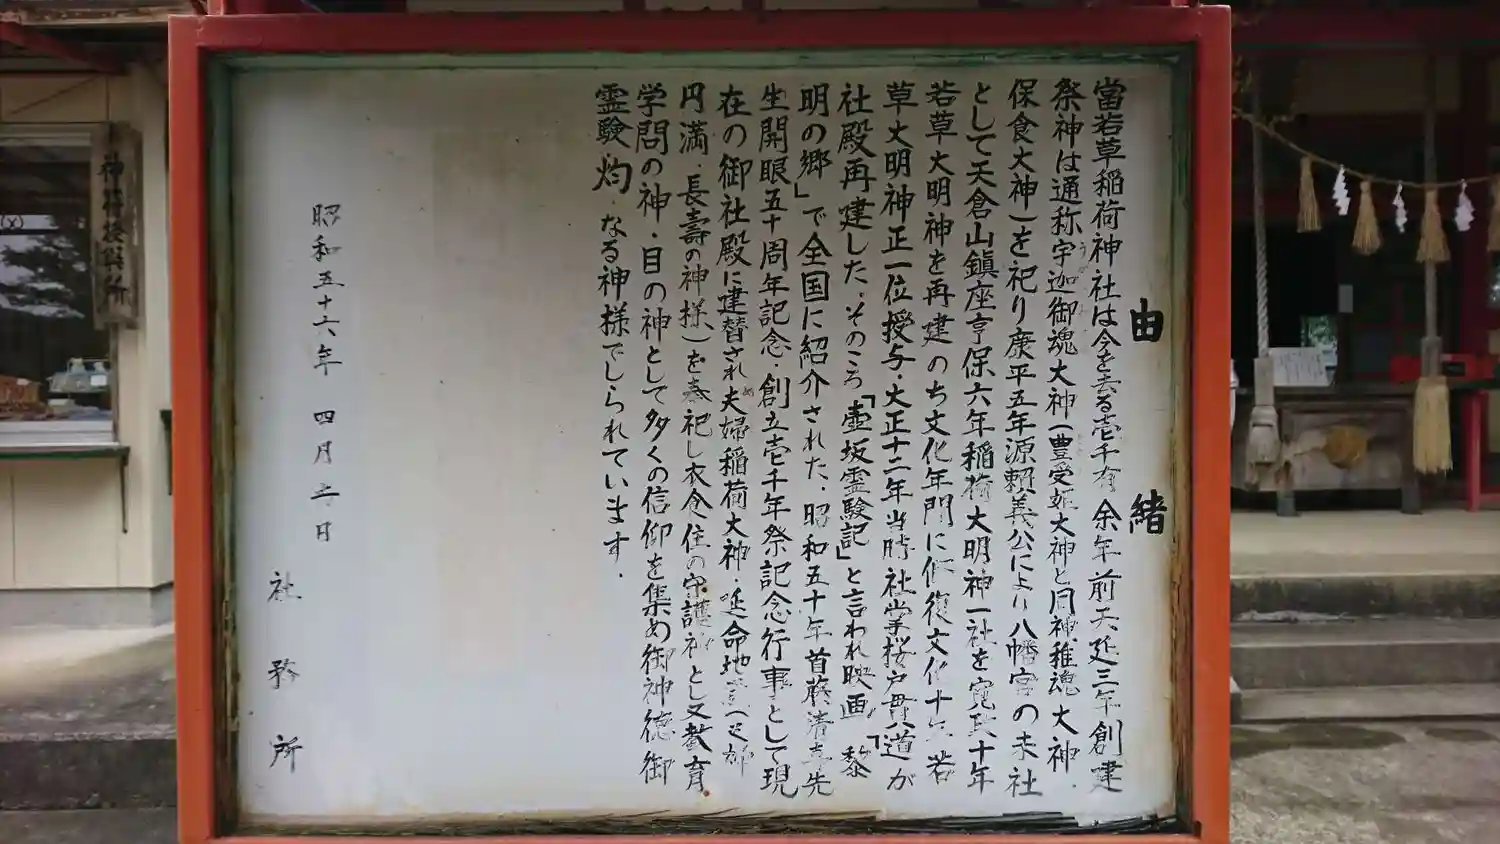 由緒
當若草稲荷神社は今を去る壱千有余年前天延三年創建
祭神は通称宇迦御魂大神(豊受姫大神と同神稚魂大神・
保食大神)を祀り康平五年源頼義公により八幡宮の末社
として天倉山鎮座亨保六年稲荷大明神一社を寛政十年
若草大明神を再建のち文化年間に修復文化十年若
草大明神正一位授与・大正十二年当時社掌桜戸貫道が
社殿再建した・そのころ「壷坂霊験記」と言われ映画「黎
明の郷」で全国に紹介された・昭和五十年首藤清喜先
生開眼五十周年記念・創立壱千年祭記念行事として現
在の御社殿に建替され夫婦稲荷大神・延命地
円満・長壽の神様)を奉祀し衣食住の守護神とし又教育
学問の神・目の神として多くの信仰を集め御神徳御
霊験灼なる神様でしられています・
昭和五十六年 四月 日
社務所
神符授与所